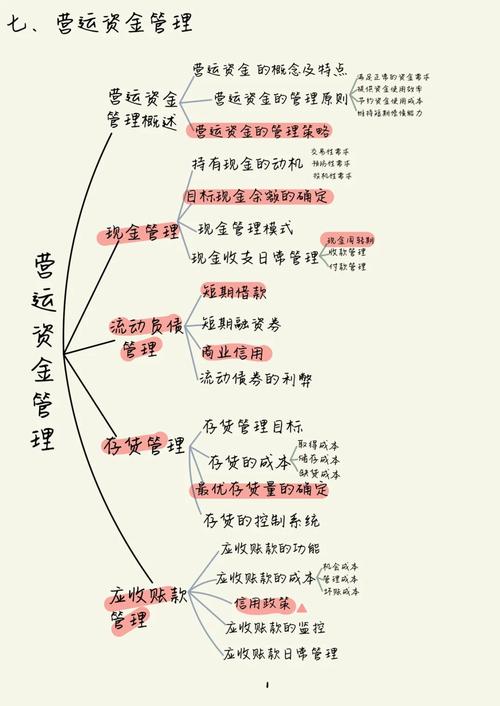 七、营运资金管理
营运资金管理
营运资金
管理概述
营运资金的概念及特点
营运资金的管理原则
满足正常的资金需求
提供资金使用效率
节约资金使用成本
维持短期偿债能力
营运资金的管理策略
现金管理
持有现金的动机
交易性需求
预防性需求
投机性需求
目标现金余额的确定
现金管理模式
现金收支日常管理
现金周转期
收款管理
付款管理
流动负债
管理
短期借款
短期融资券
商业信用
流动债券的利弊
存货管理
存货管理目标
存货的成本
取得成本
储存成本
缺货成本
最优存货量的确定
存货的控制系统
应收账款
管理
应收账款的功能
应收账款的成本
机会成本
管理成本
坏账成本
信用政策
应收账款的监控
应收账款日常管理
1